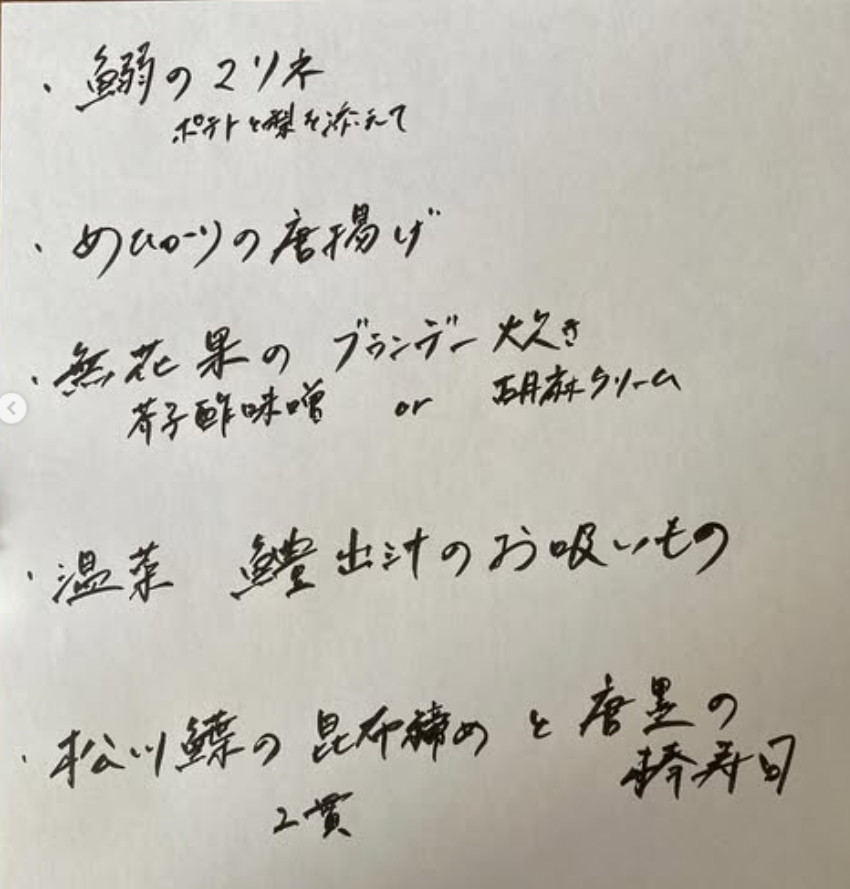 ・鰯のマリネ
ポテトと梨を添えて
・めひかりの唐揚げ
・無花果の ブランデー炊き
芥子酢味噌 or 胡麻クリーム
・温菜 鱧出汁のお吸いもの
・松川鰈の昆布締めと唐墨の
棒寿司
2貫